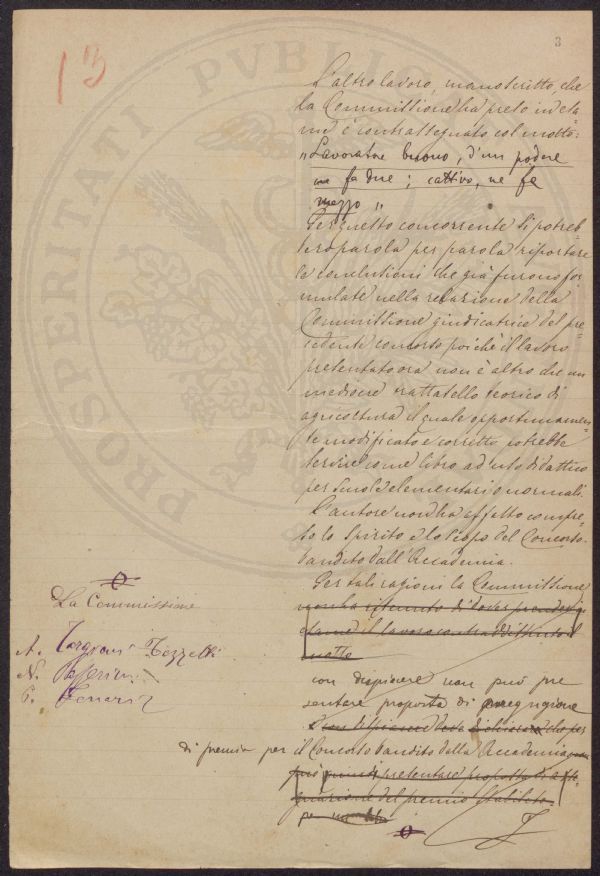 3
13
L'altro lavoro, manoscritto, che
la Commissione ha preso in esa=
me è contrassegnato col motto:
"Lavoratore buono, d'un podere
ne fa due; cattivo, ne fa
mezzo"
Per questo concorrente si potreb=
bero parola per parola riportare
le conclusioni che già furono for
mulate nella relazione della
Commissione giudicatrice del pre=
cedente concorso poichè il lavoro
presentato ora non è altro che un
mediocre trattatello teorico di
agricoltura il quale opportunamen=
te modificato e corretto potrebbe
servire come libro ad uso didattico
per Scuole elementari o normali.
L'autore non ha affatto compre=
so lo spirito e lo scopo del Concorso
bandito dall'Accademia.
Per tali ragioni la Commissione
non ha ritenuto di dover prendere
esame il lavoro contraddistinto il
motto
con dispiacere non può pre
sentare proposta di aggregazione
di premio per il Concorso bandito dalla Accademia
può quindi presentare proposta di asse
gnazione del premio stabilito
La Commissione
A. Targioni Tozzetti
N. Passerini
P. Ferrari
PROSPERITATI PVBLIC